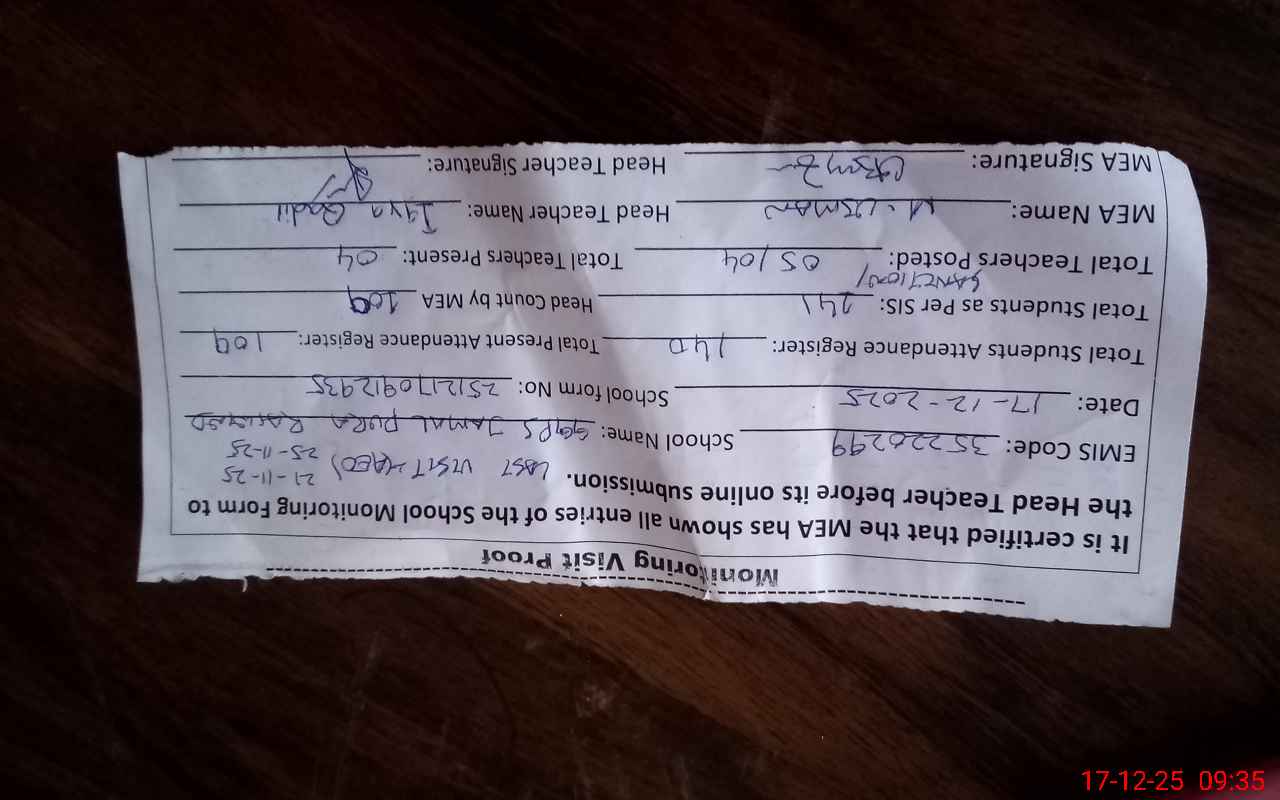 Monitoring Visit Proof
It is certified that the MEA has shown all entries of the School Monitoring Form to
the Head Teacher before its online submission. LAST VISIT (AEO) 21-11-25
25-11-25
EMIS Code: 35220299 School Name: GGPS JAMAL PURA
Date: 17-12-2025 School form No: 2512170912935
Total Students Attendance Register: 140 Total Present Attendance Register: 109
Total Students as Per SIS: 141 Head Count by MEA 109
SANCTION/
Total Teachers Posted: 05/04 Total Teachers Present: 04
MEA Name: M. USMAN Head Teacher Name: Iqra
MEA Signature: Head Teacher Signature:
17-12-25 09:35